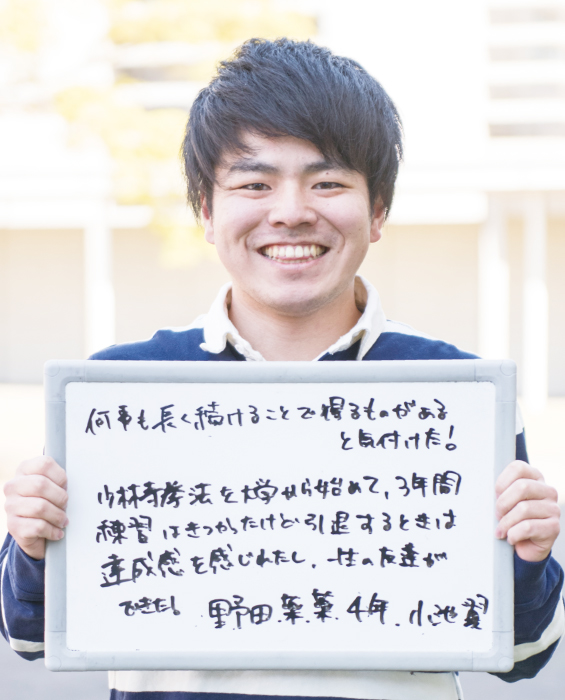 何事も長く続けることで得るものがある
と気付けた!
少林寺拳法を大学から始めて、3年間
練習はきつかったけど引退するときは
達成感を感じれたし、一生の友達が
できた! 野田.薬.薬.4年.小池翼